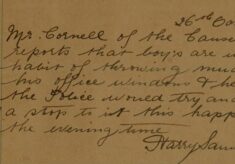 26th Oc
Mr. Cornell of the Cause
reports that boys are in
habit of throwing mud
his office window & he
the Police would try and
a stop to it this happ
the evening time
Harry Sam